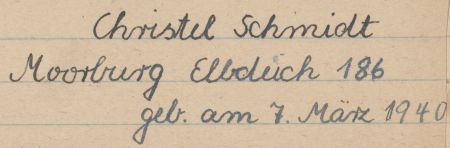 Christel Schmidt
Moorburg Elbdeich 186
geb. am 7. März 1940